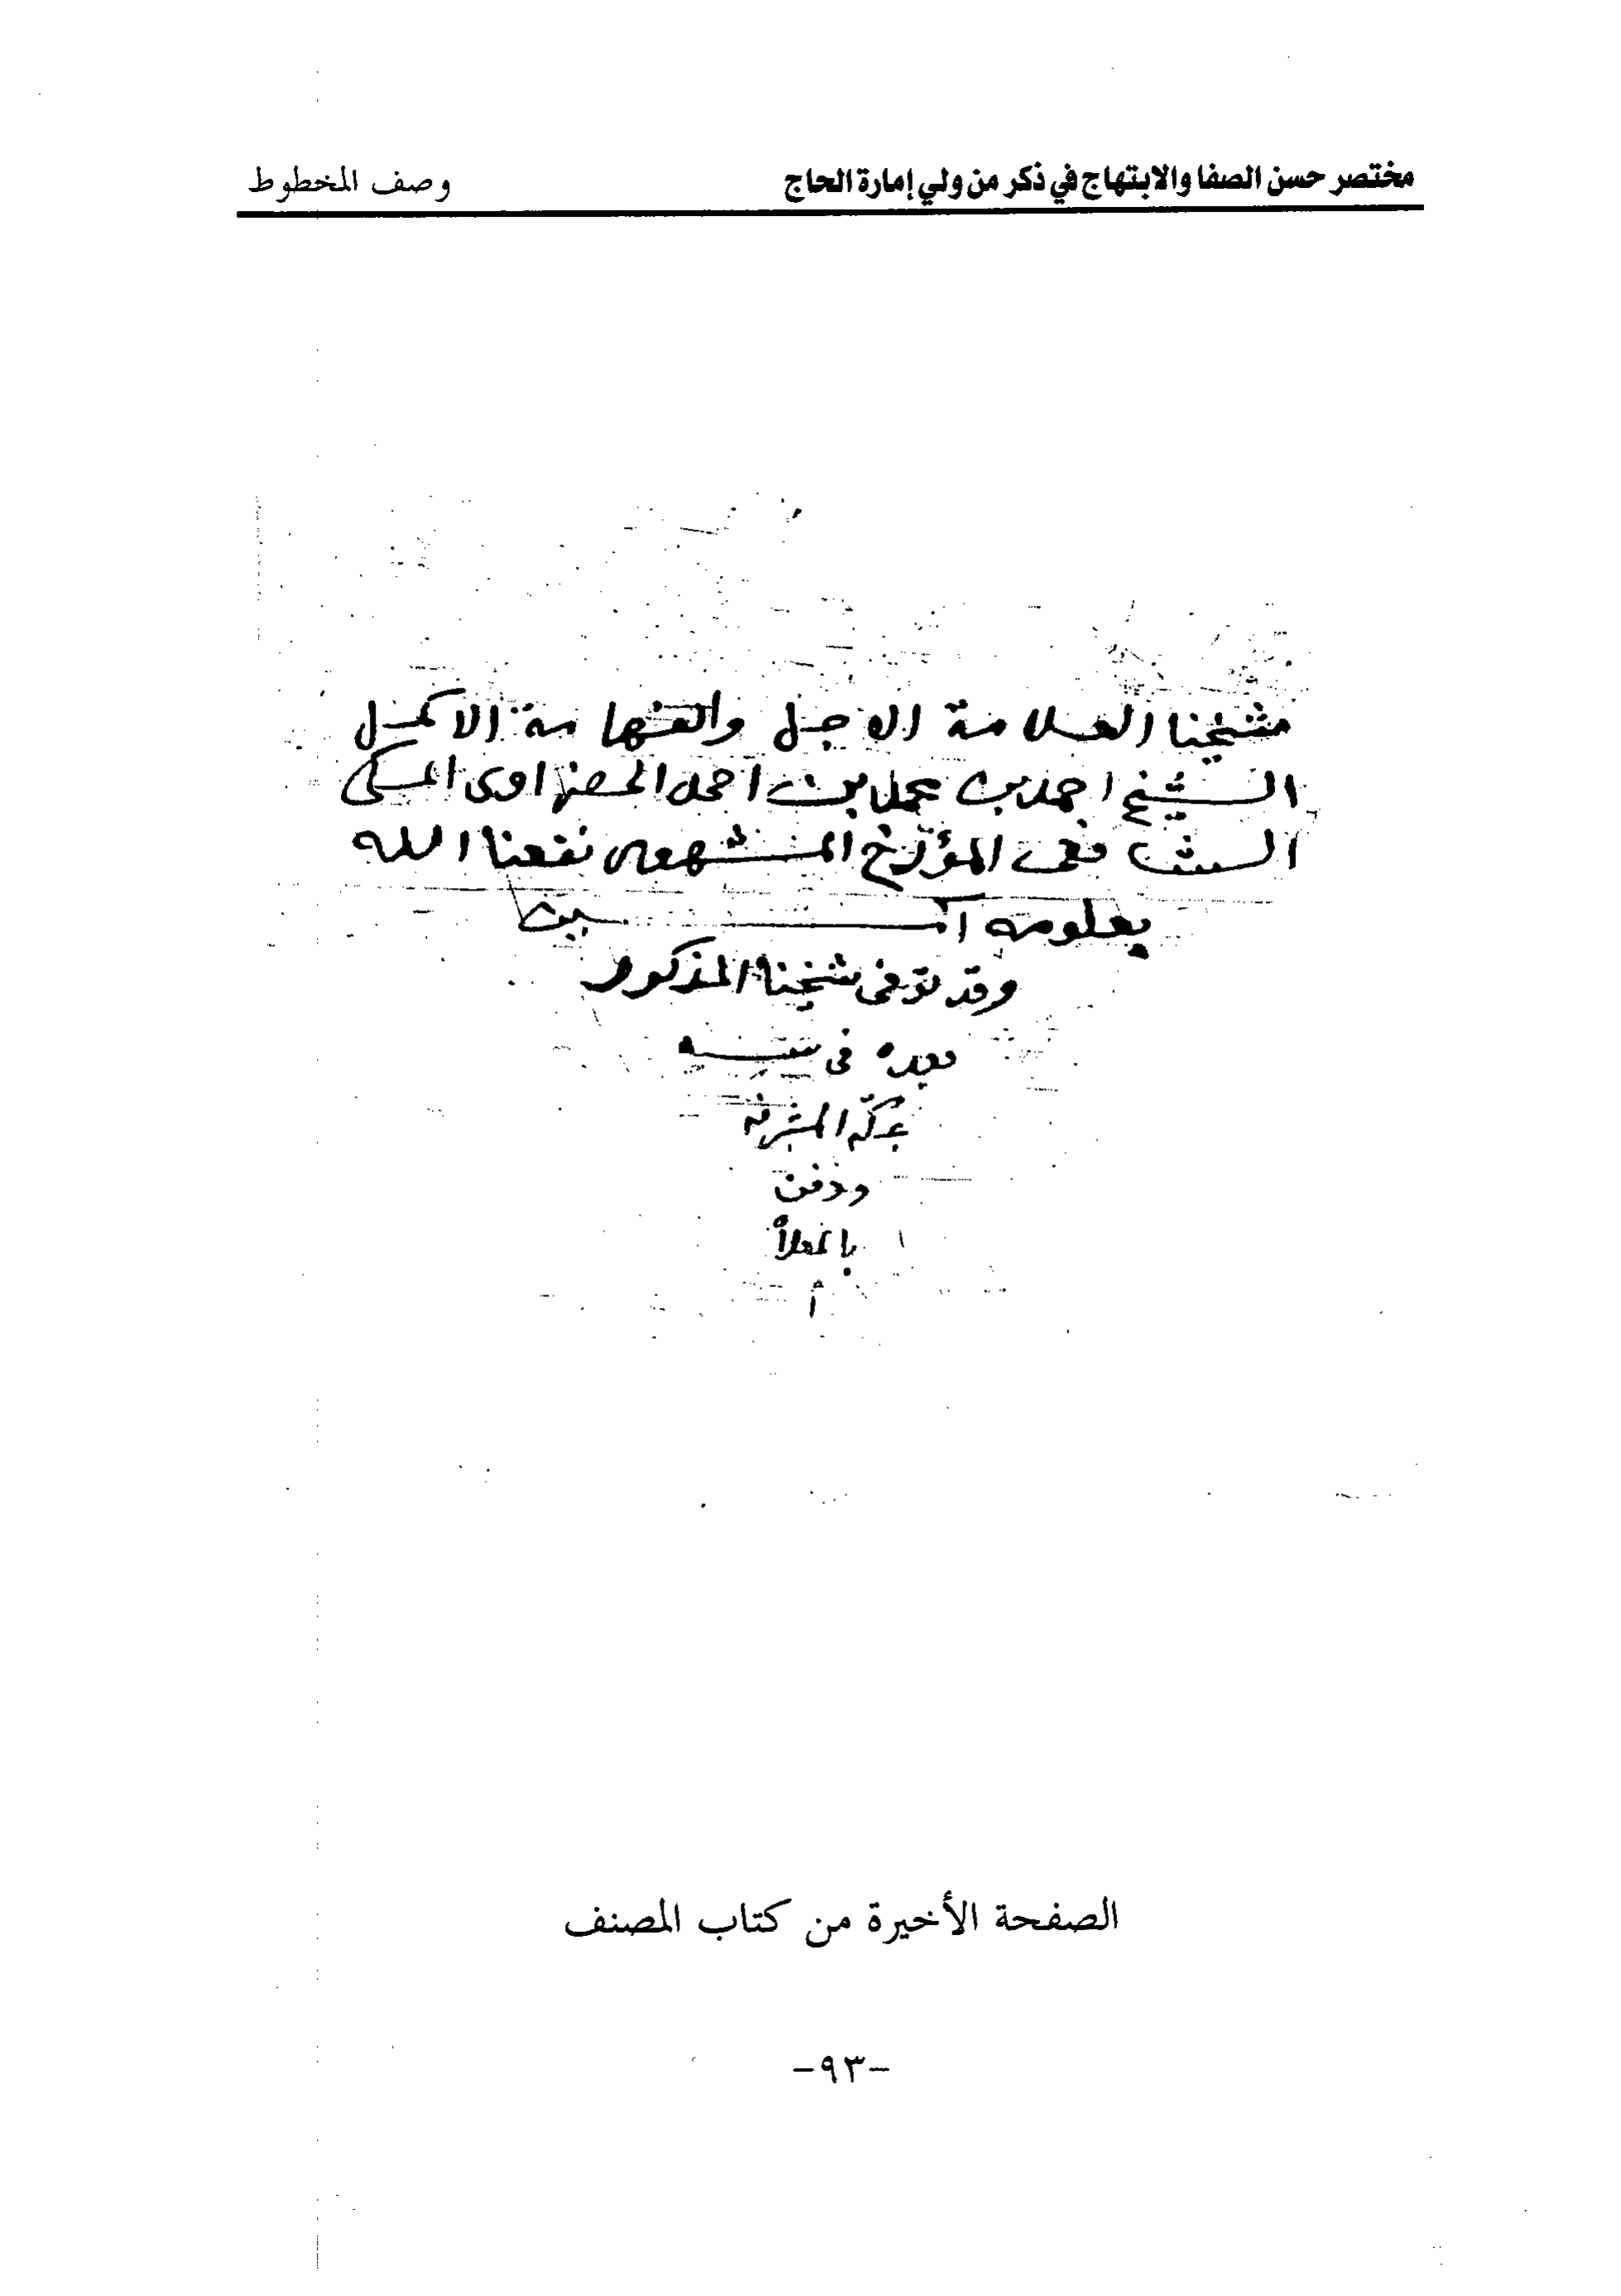 مختصر حسن الصفا والابتهاج في ذكر من ولي إمارة الحاج
وصف المخطوط
شيخنا العلامة الاجل والفهامة الاكمل
الشيخ احمد بن محمد بن احمد الحضراوى المكى
الشافعى المؤرخ المشهور نفعنا الله
بعلومه آمين
وقد توفى شيخنا المذكور
بعده فى سنه
بمكة المشرفه
ودفن
بالمعلاة
م
الصفحة الأخيرة من كتاب المصنف
-٩٣-